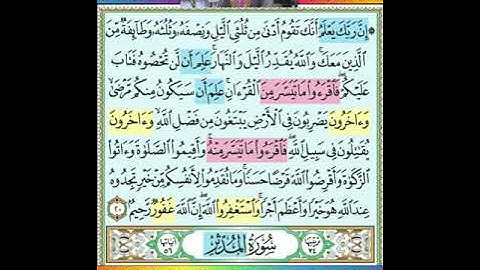 ۞ إِنَّ رَبَّكَ يَعْلَمُ أَنَّكَ تَقُومُ أَدْنَىٰ مِن ثُلُثَيِ ٱلَّيْلِ وَنِصْفَهُۥ وَثُلُثَهُۥ وَطَآئِفَةٌ مِّنَ
ٱلَّذِينَ مَعَكَ ۚ وَٱللَّهُ يُقَدِّرُ ٱلَّيْلَ وَٱلنَّهَارَ ۚ عَلِمَ أَن لَّن تُحْصُوهُ فَتَابَ
عَلَيْكُمْ ۖ فَٱقْرَءُوا۟ مَا تَيَسَّرَ مِنَ ٱلْقُرْءَانِ ۚ عَلِمَ أَن سَيَكُونُ مِنكُم مَّرْضَىٰ ۙ
وَءَاخَرُونَ يَضْرِبُونَ فِى ٱلْأَرْضِ يَبْتَغُونَ مِن فَضْلِ ٱللَّهِ ۙ وَءَاخَرُونَ
يُقَٰتِلُونَ فِى سَبِيلِ ٱللَّهِ ۖ فَٱقْرَءُوا۟ مَا تَيَسَّرَ مِنْهُ ۚ وَأَقِيمُوا۟ ٱلصَّلَوٰةَ وَءَاتُوا۟
ٱلزَّكَوٰةَ وَأَقْرِضُوا۟ ٱللَّهَ قَرْضًا حَسَنًا ۚ وَمَا تُقَدِّمُوا۟ لِأَنفُسِكُم مِّنْ خَيْرٍ تَجِدُوهُ
عِندَ ٱللَّهِ هُوَ خَيْرًا وَأَعْظَمَ أَجْرًا ۚ وَٱسْتَغْفِرُوا۟ ٱللَّهَ ۖ إِنَّ ٱللَّهَ غَفُورٌ رَّحِيمٌۢ ٢٠
ترتيبها ٧٤ سُورَةُ الْمُدَّثِّرِ آياتها ٥٦